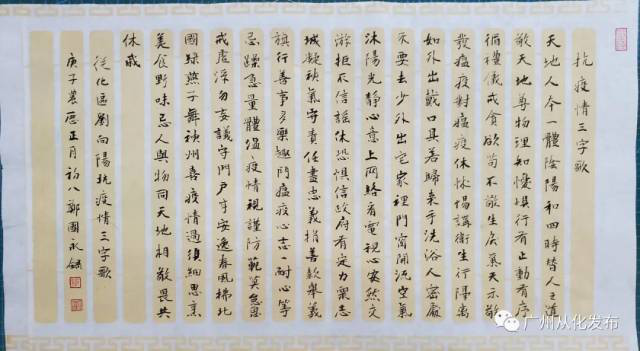 抗疫情三字歌
天地人本一體陰陽和四時替人之道
敬天地尊物理知懼慎行有止動有序
循禮儀戒貪欲苟不敬生戾氣天示警
發瘟疫對瘟疫休怵惕講衛生行隔離
如外出戴口具若歸來手洗浴人密處
不要去少外出宅家裡門窗開流空氣
沐陽光靜心意上网絡看電視心安然交
游拒不信謠休恐惧信政府有定力眾志
城凝禎氣守責任盡忠義捐善款舉義
旗行善事多樂趣鬥瘟疫心志一耐心等
忌躁急量體溫疫情視謹防範莫怠忽
戒虛浮勿妄議守門户享安逸春風拂北
國綠燕子舞神州喜疫情過須細思烹
美食野味忌人與物同天地相敬畏共
休戚
從化區劉向陽抗疫情三字歌
庚子農曆正月初八鄭國永錄
广州从化发布